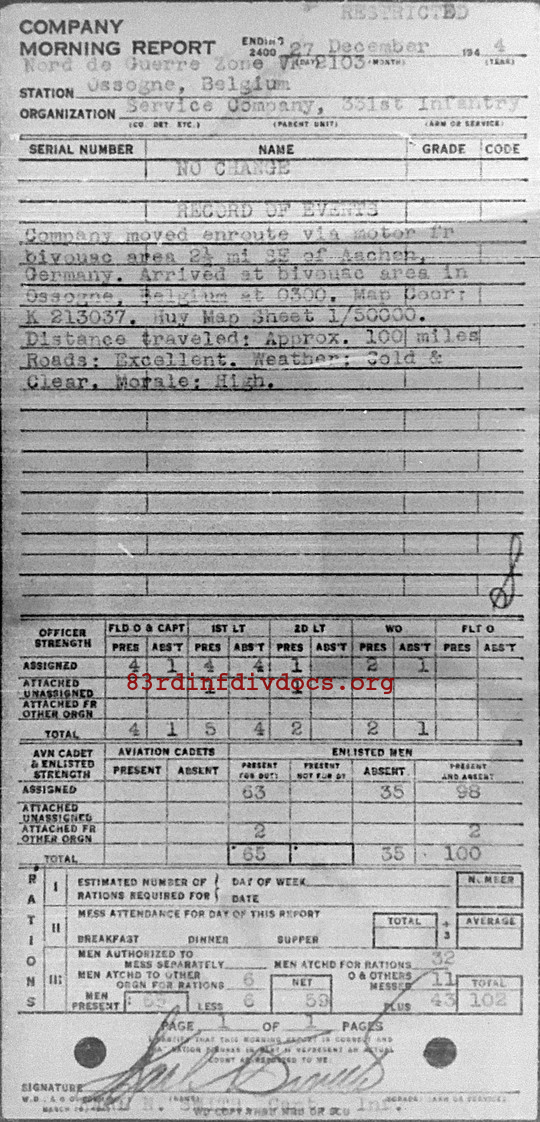 RESTRICTED
COMPANY
MORNING REPORT ENDING 2400 27 December 194 4
(DAY) (MONTH) (YEAR)
Nord de Guerre Zone VK 2103
STATION Ossogne, Belgium
ORGANIZATION Service Company, 331st Infantry
(CO. DET. ETC.) (PARENT UNIT) (ARM OR SERVICE)
SERIAL NUMBER NAME GRADE CODE
NO CHANGE
RECORD OF EVENTS
Company moved enroute via motor fr
bivouac area 2½ mi SE of Aachen,
Germany. Arrived at bivouac area in
Ossogne, Belgium at 0300. Map Coor:
K 213037. Huy Map Sheet 1/50000.
Distance traveled: Approx. 100 miles
Roads: Excellent. Weather: Cold &
Clear. Morale: High.
OFFICER STRENGTH FLD O & CAPT 1ST LT 2D LT WO FLT O
PRES ABS'T PRES ABS'T PRES ABS'T PRES ABS'T PRES ABS'T
ASSIGNED 4 1 4 4 1 2 1
ATTACHED UNASSIGNED 1 1
83rdinfdivdocs.org
ATTACHED FR OTHER ORGN
TOTAL 4 1 5 4 2 2 1
AVN CADET & ENLISTED STRENGTH AVIATION CADETS ENLISTED MEN
PRESENT ABSENT PRESENT FOR DUTY PRESENT NOT FOR DY ABSENT PRESENT AND ABSENT
ASSIGNED 63 35 98
ATTACHED UNASSIGNED
ATTACHED FR OTHER ORGN 2 2
TOTAL 65 35 100
RATIONS
I ESTIMATED NUMBER OF RATIONS REQUIRED FOR { DAY OF WEEK DATE NUMBER
II MESS ATTENDANCE FOR DAY OF THIS REPORT TOTAL ÷ 3 AVERAGE
BREAKFAST DINNER SUPPER
III MEN AUTHORIZED TO MESS SEPARATELY MEN ATCHD FOR RATIONS 32
MEN ATCHD TO OTHER ORGN FOR RATIONS 6 NET O & OTHERS MESSED 11 TOTAL
MEN PRESENT 65 LESS 6 59 PLUS 43 102
PAGE 1 OF 1 PAGES
I CERTIFY THAT THIS MORNING REPORT IS CORRECT AND
SIGNATURE
SMITH, Capt, Inf.